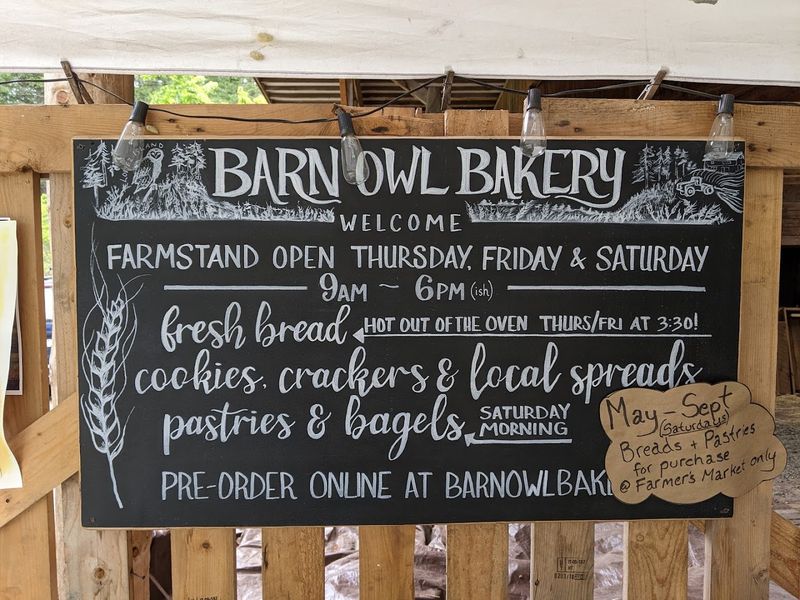 BARN OWL BAKERY
WELCOME
FARMSTAND OPEN THURSDAY, FRIDAY & SATURDAY
9AM ~ 6PM (ish)
fresh bread HOT OUT OF THE OVEN THURS/FRI AT 3:30!
cookies, crackers & local spreads
pastries & bagels SATURDAY
MORNING
PRE-ORDER ONLINE AT BARNOWLBAK
May - Sept
(Saturdays)
Breads + Pastries
for purchase
@ Farmer's Market only